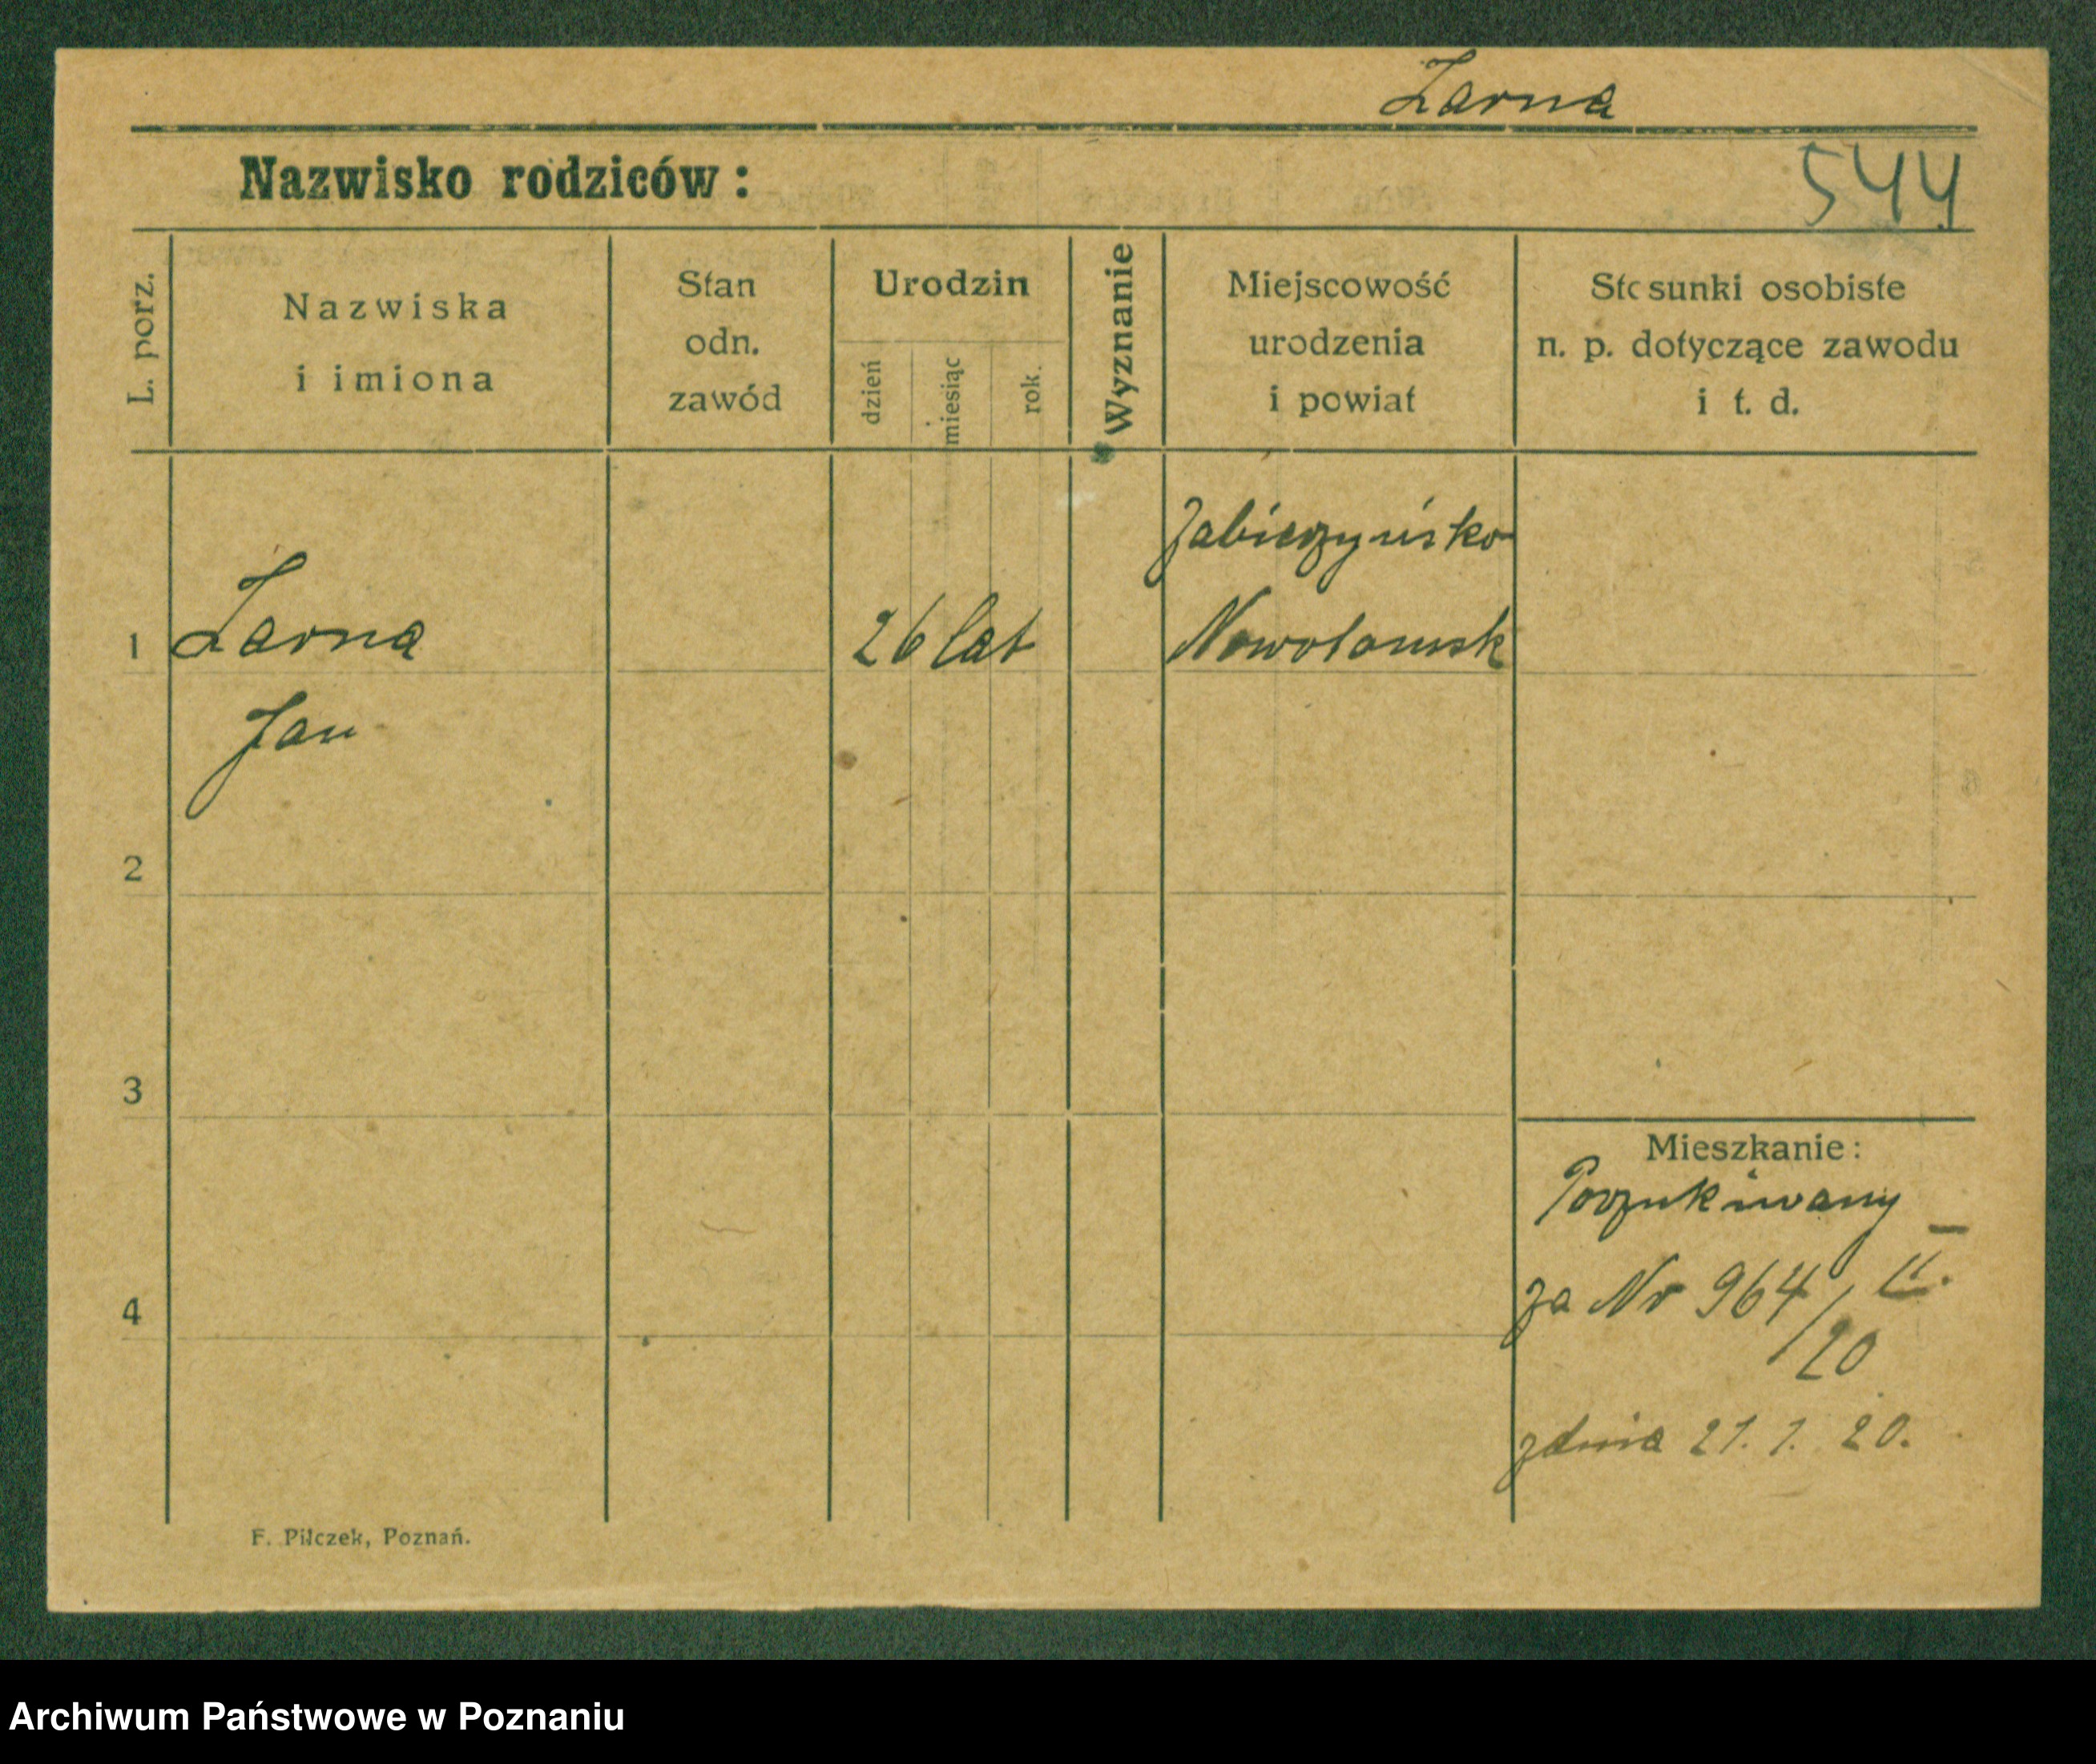 Zarna
Nazwisko rodziców:
544
L. porz.
Nazwiska
i imiona
Stan
odn.
zawód
Urodzin
dzień
miesiąc
rok.
Wyznanie
Miejscowość
urodzenia
i powiat
Stosunki osobiste
n. p. dotyczące zawodu
i t. d.
1
Zarna
Jan
26 lat
Nowotomsk
2
3
4
Mieszkanie:
Poszukiwany
za Nr 964/20 II.
zdnia 21. 1. 20.
F. Pilczek, Poznań.
Archiwum Państwowe w Poznaniu